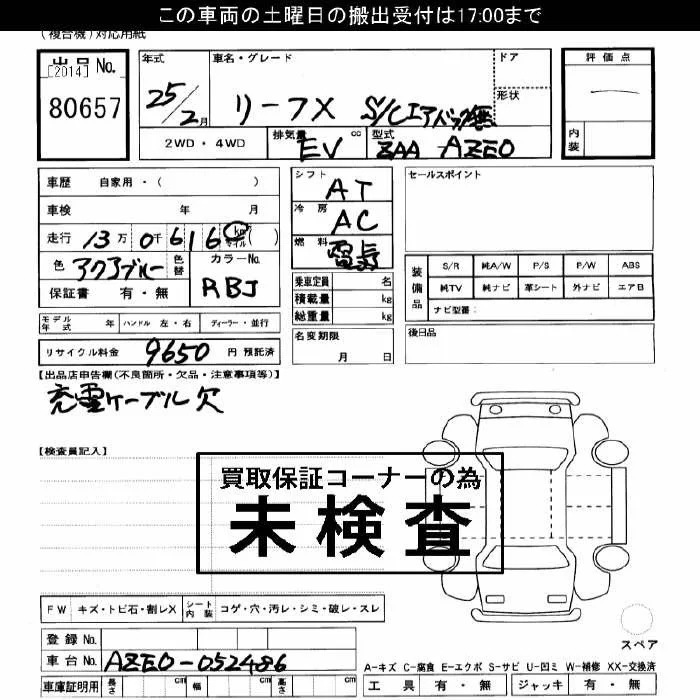 この車両の土曜日の搬出受付は17:00まで
(複合機)対応用紙
出品 No.
[2014]
80657
年式 車名・グレード ドア 評価点
25/2月 リーフX S/Cエアバック無 形状 —
2WD・4WD 排気量 EV cc 型式 ZAA AZEO 内装
車歴 自家用・( )
車検 年 月
走行 13万 0千616 km マイル ( )
色 アクアブルー 色替 カラーNo. RBJ
保証書 有・無
シフト AT
冷房 AC
燃料 電気
乗車定員 名
積載量 kg
総重量 kg
セールスポイント
装備品 S/R 純A/W P/S P/W ABS
純TV 純ナビ 革シート 外ナビ エアB
ナビ型番:
モデル年式 年 ハンドル 左・右 ディーラー・並行
名変期限 月 日
後日品
リサイクル料金 9650 円 預託済
【出品店申告欄(不良箇所・欠品・注意事項等)】
充電ケーブル欠
【検査員記入】
買取保証コーナーの為
未検査
FW キズ・トビ石・割レX シート内装 コゲ・穴・汚レ・シミ・破レ・スレ
スペア
登録 No.
車台 No. AZEO-052486
A-キズ C-腐食 E-エクボ S-サビ U-凹ミ W-補修 XX-交換済
車庫証明用 長さ cm 幅 cm 高さ cm 工具 有・無 ジャッキ 有・無